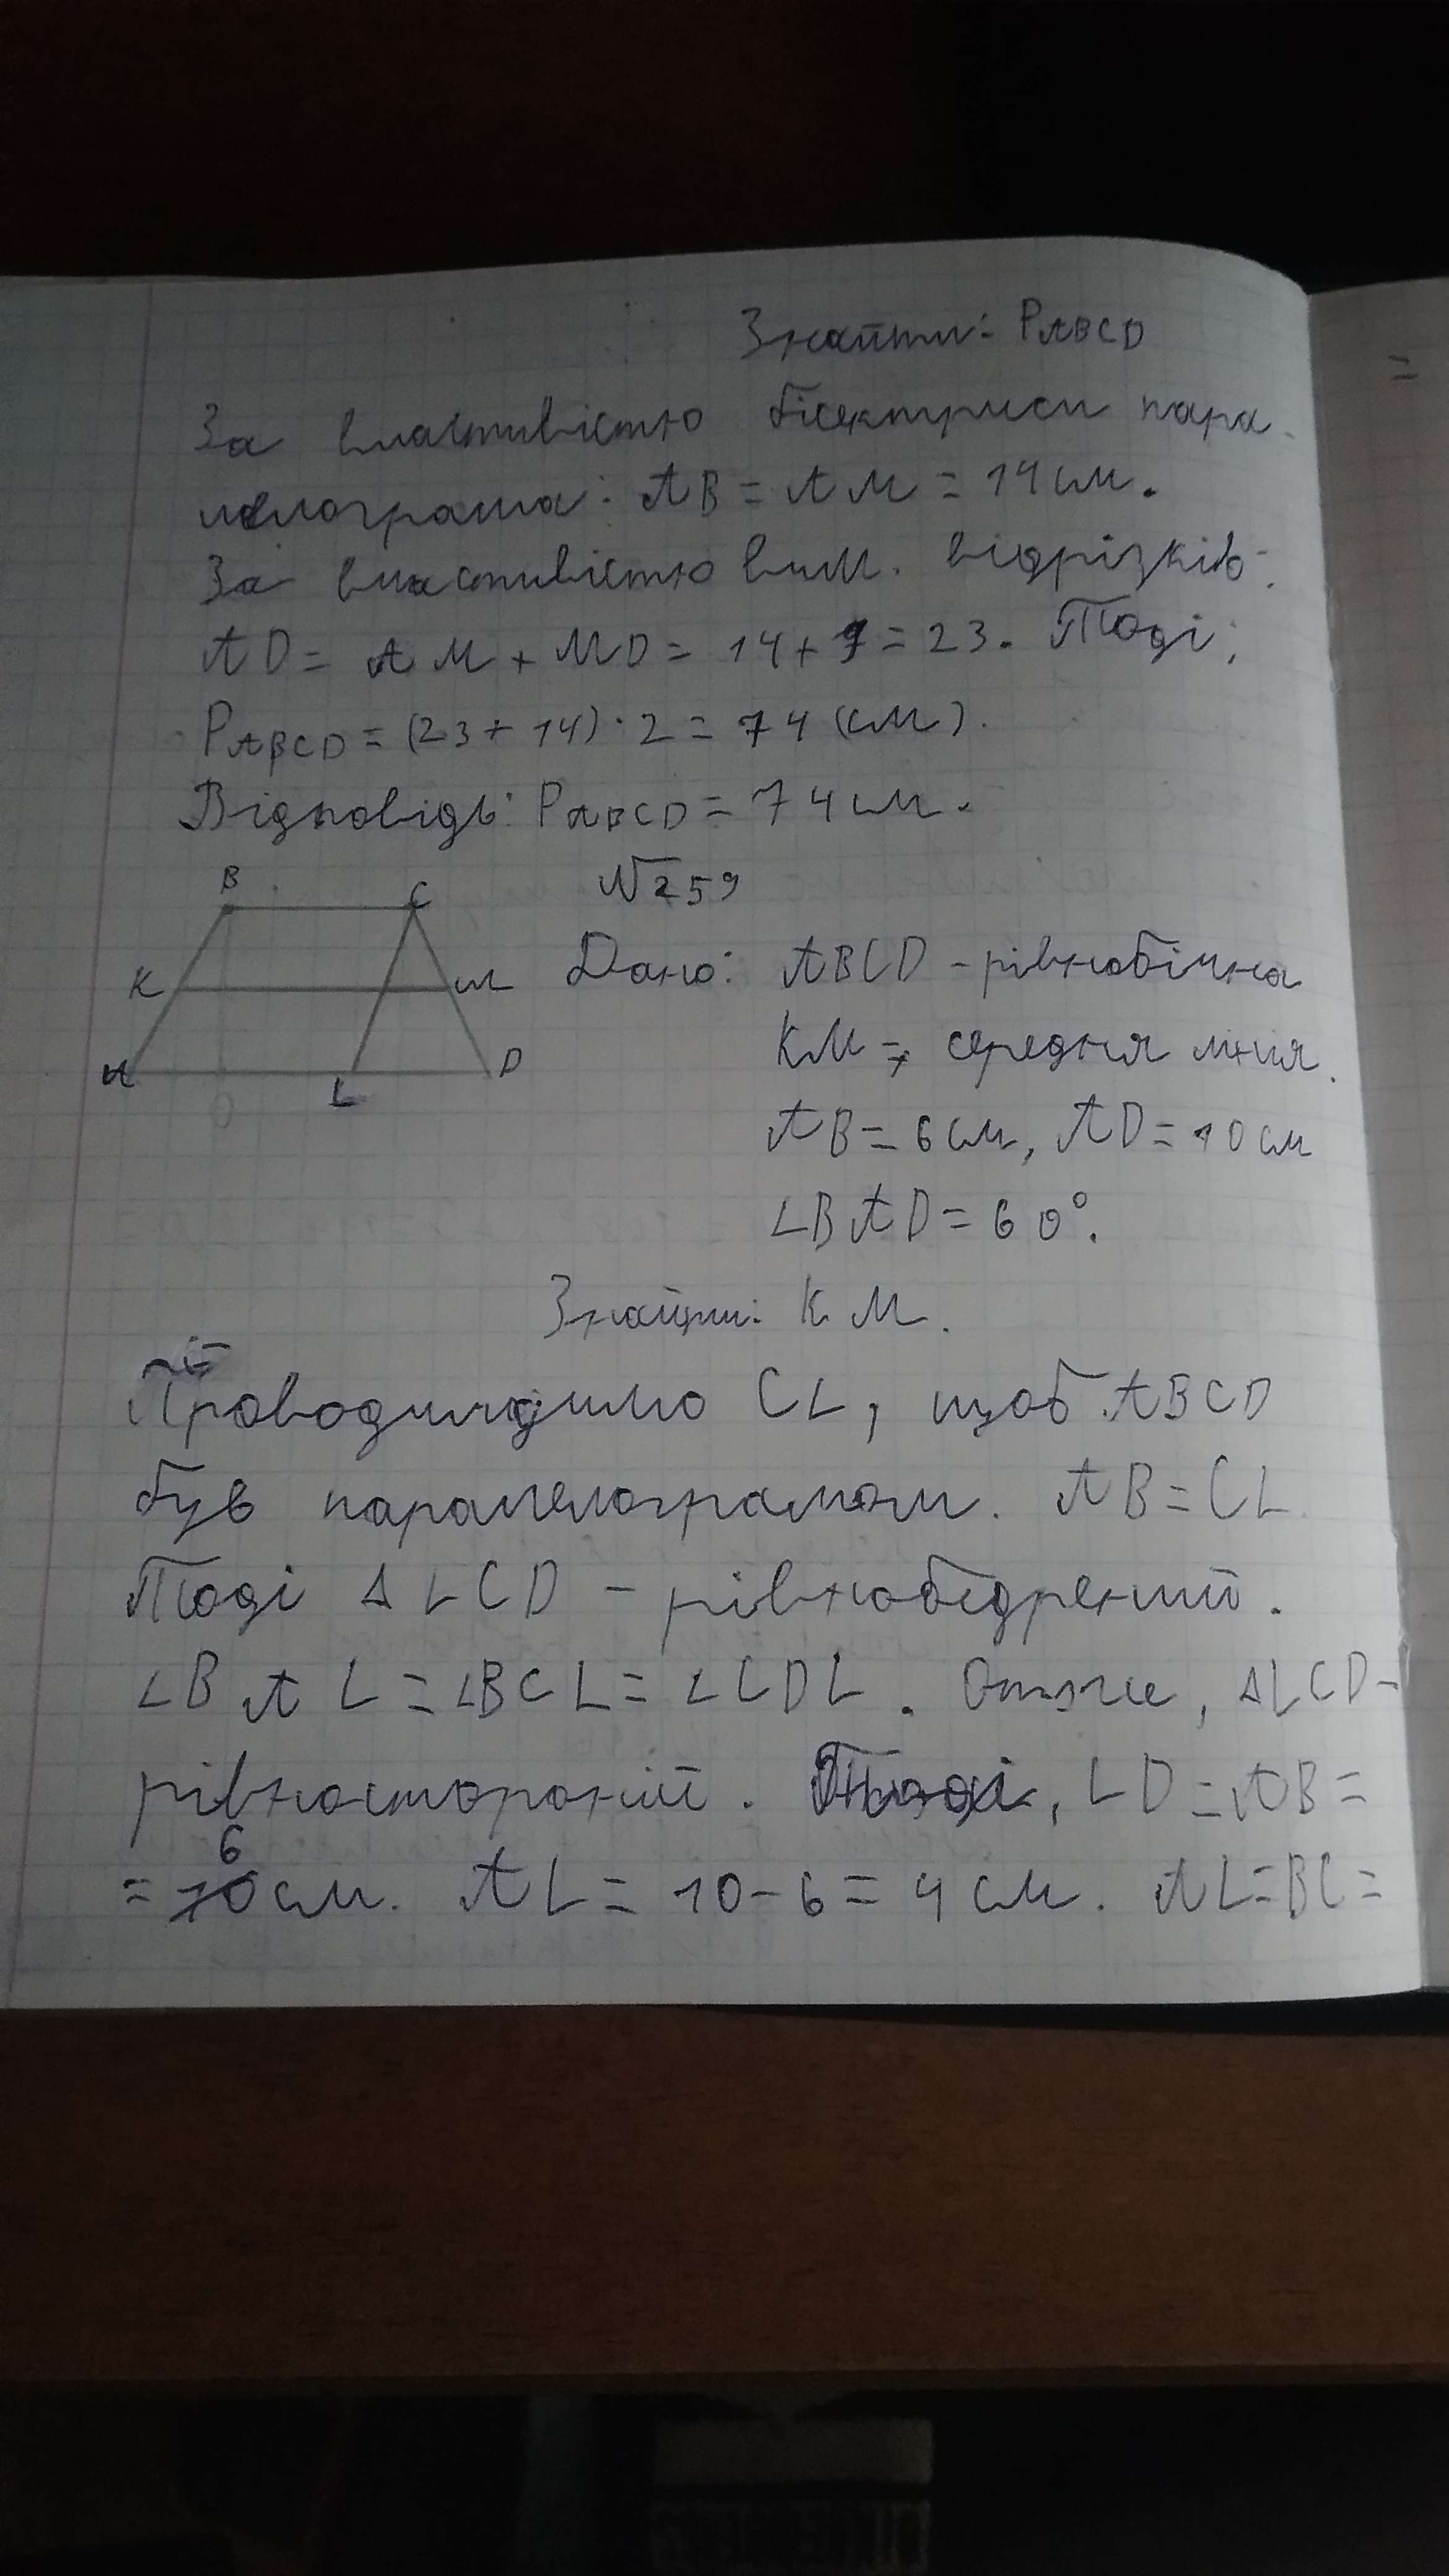 Знайти: PABCD
За властивістю бісектриси пара-
лелограма: AB = AM = 14 см.
За властивістю вим. відрізків:
AD = AM + MD = 14 + 9 = 23. Тоді;
PABCD = (23 + 14) · 2 = 74 (см).
Відповідь: PABCD = 74 см.
№259
B C
K M
A L D
Дано: ABCD - рівнобічна
KM - середня лінія.
AB = 6 см, AD = 10 см
∠BAD = 60°.
Знайти: KM.
CL, щоб ABCD
був паралелограмом. AB = CL
Тоді Δ LCD - рівнобедрений.
∠BAL = ∠BCL = ∠CDL. Отже, ΔLCD -
рівносторонній. Тоді, LD = AB =
= 6 см. AL = 10 - 6 = 4 см. AL = BC =
=